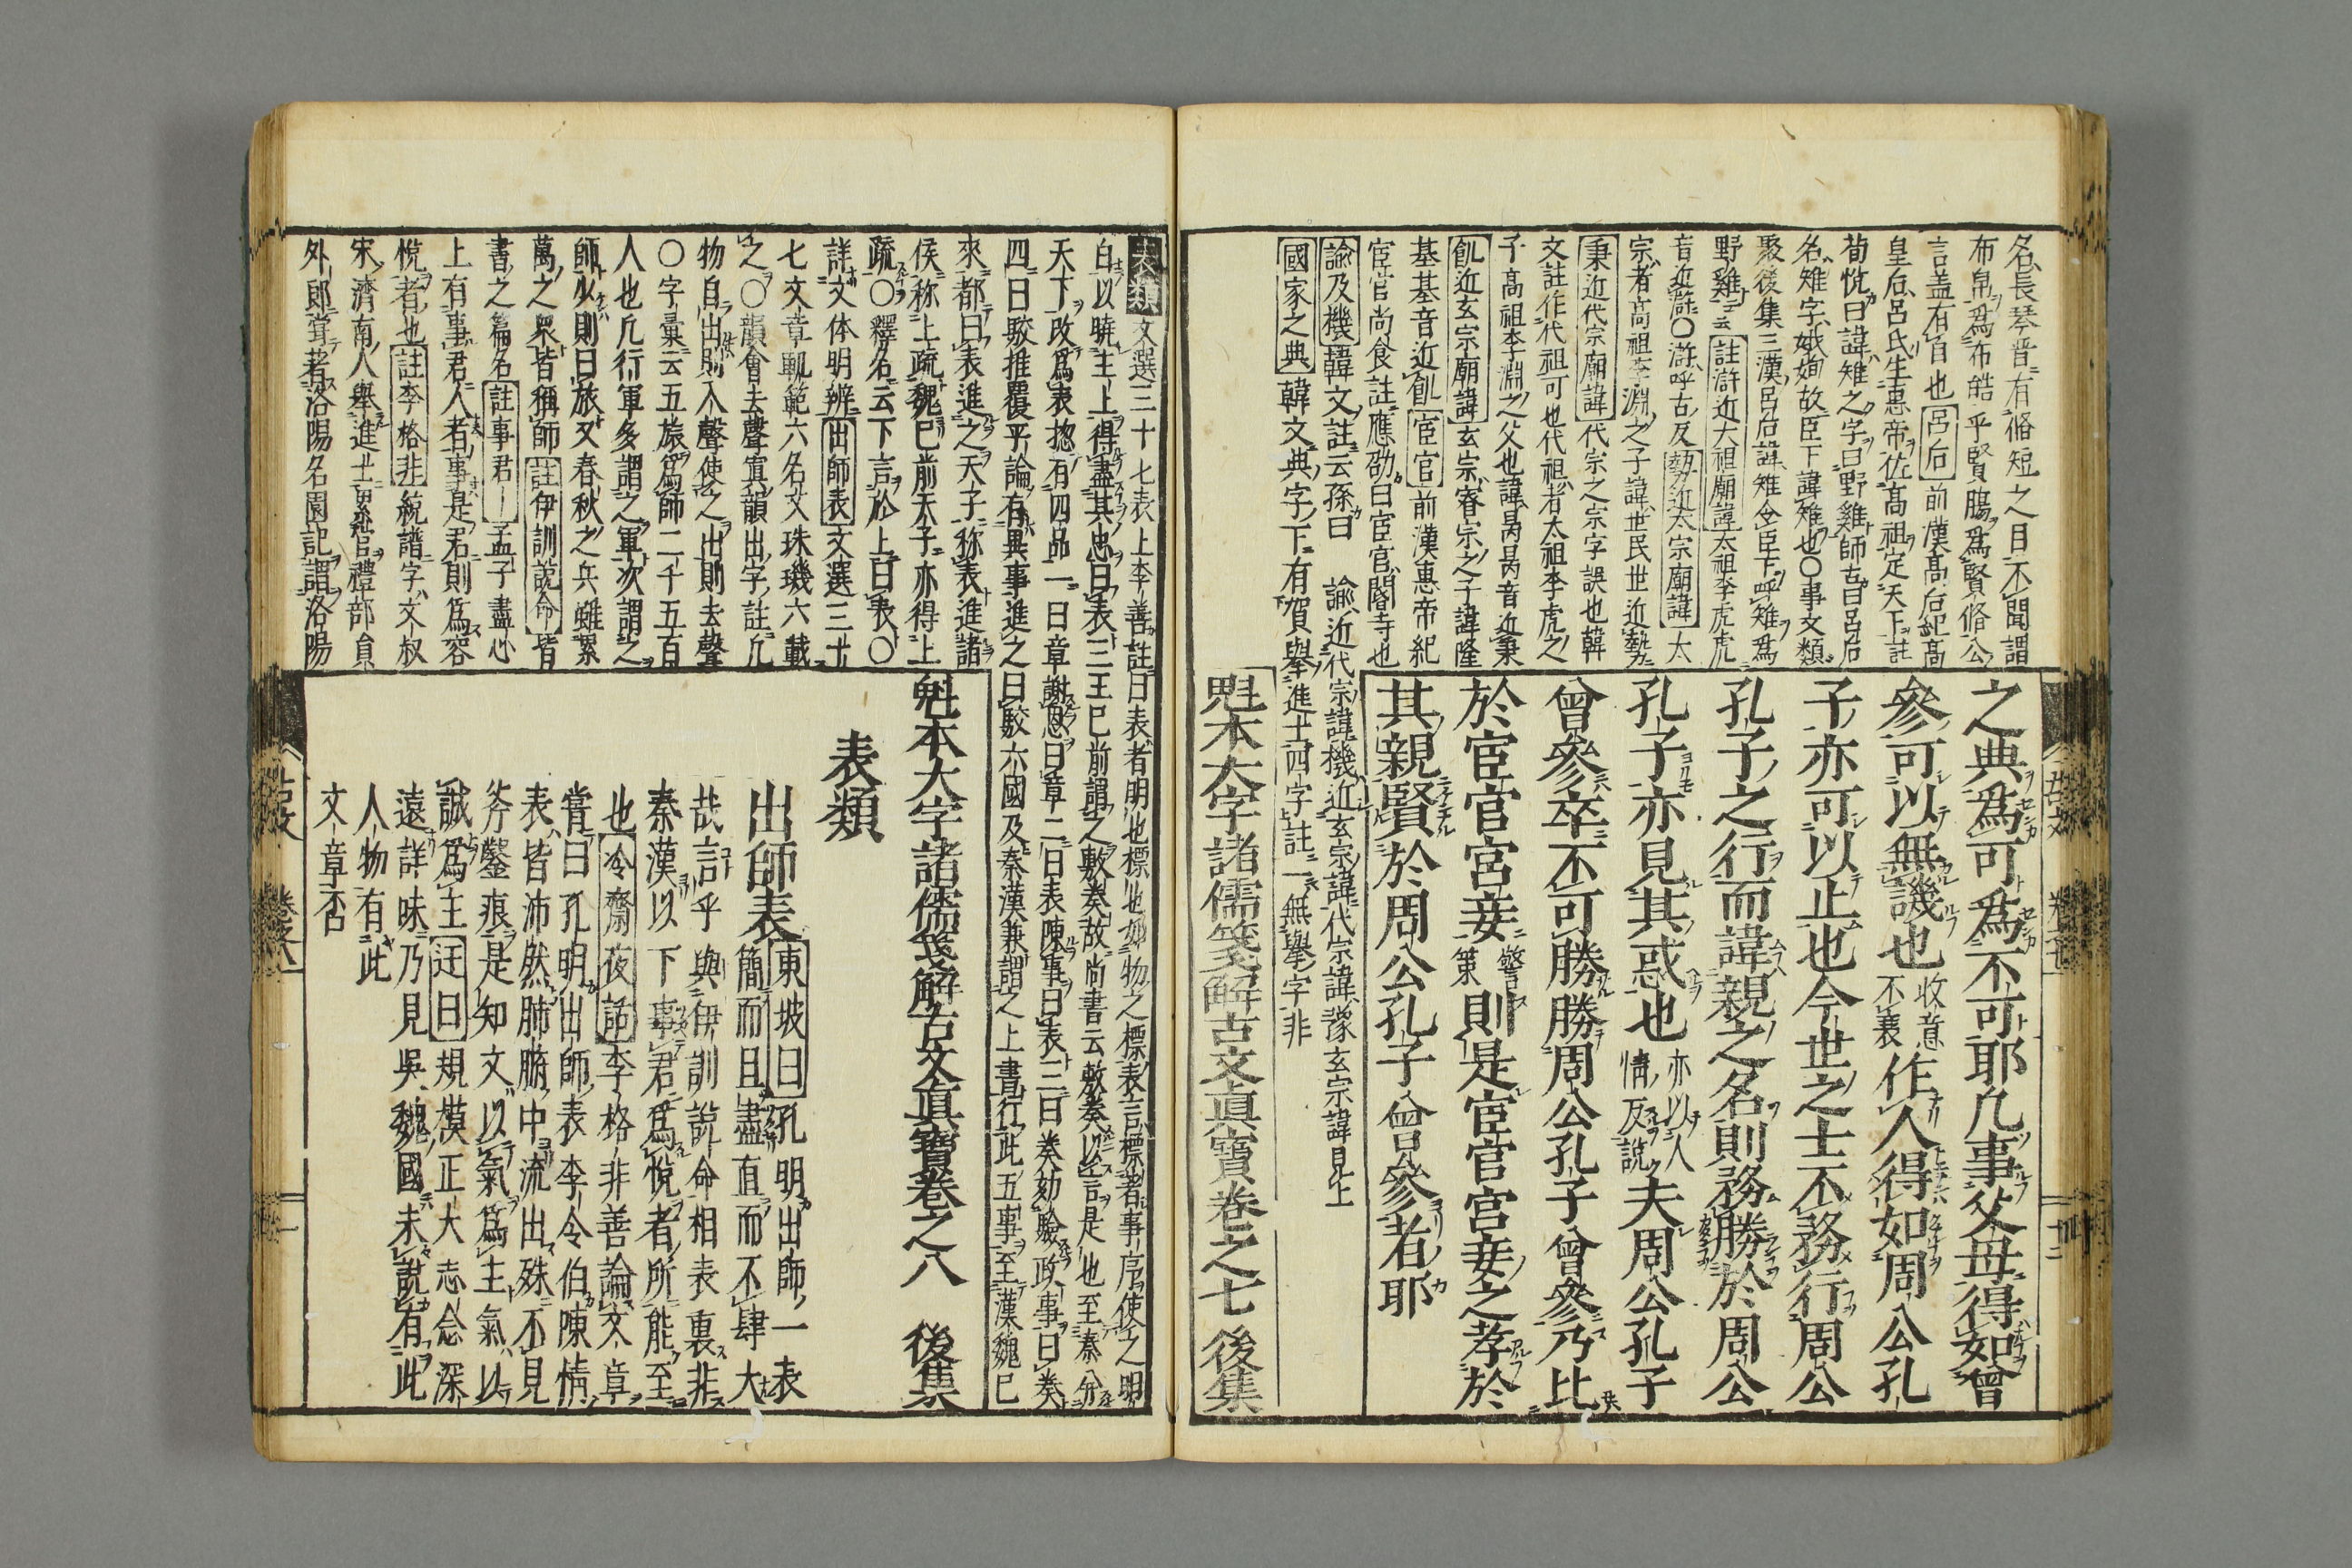 名長琴晋有脩短之目不聞謂
布帛為布皓乎賢膓為賢脩公
言盖有自也呂后前漢髙后紀髙
皇后呂氏生惠帝佐髙祖定天下註
荀悦曰諱雉之字曰野雞師古曰呂后
名雉字娥姁故臣下諱雉也〇事文類
聚後集三漢呂后諱雉令臣下呼雉為
野雞云註滸近大祖廟諱太祖李虎虎
音近滸〇滸呼古反勢近太宗廟諱太
宗者髙祖李淵之子諱世民世近勢
秉近代宗廟諱代宗之宗字誤也韓
文註作代祖可也代祖者太祖李虎之
子髙祖李淵之父也諱昺昺音近秉
飢近玄宗廟諱玄宗睿宗之子諱隆
基基音近飢宦官前漢惠帝紀
宦官尚食註應劭曰宦官閽寺也
諭及機韓文註云孫曰 諭近代宗諱機近玄宗諱代宗諱豫玄宗諱見上
國家之典韓文典字下有賀舉進士四字註一無舉字非
之典為可為不可耶凡事父母得如曾
參可以無譏也收意不衰作人得如周公孔
子亦可以止也今世之士不務行周公
孔子之行而諱親之名則務勝於周公
孔子亦見其惑也亦以人情反說夫周公孔子
曾參卒不可勝勝周公孔子曾參乃比
於宦官宮妾警策則是宦官宮妾之孝於
其親賢於周公孔子曾參者耶
魁本大字諸儒箋解古文眞寶卷之七 後集
古文 卷七
十二
表類文選三十七表上李善註曰表者明也標也如物之標表言標著事序使之明
白以曉主上得盡其忠曰表三王已前謂之敷奏故尚書云敷奏以言是也至秦分
天下改為表揔有四品一曰章謝恩曰章二曰表陳事曰表三曰奏劾驗政事曰奏
四曰駮推覆平論有異事進之曰駮六國及秦漢兼謂之上書行此五事至漢魏已
來都曰表進之天子称表進諸
侯称上疏魏已前天子亦得上
疏〇釋名云下言於上曰表〇
詳文体明辨出師表文選三十
七文章軌範六名文珠璣六載
之〇韻會去聲寘韻出字註凡
物自出則入聲使之出則去聲
〇字彙云五旅為師二千五百
人也凡行軍多謂之軍次謂之
師少則曰旅又春秋之兵雖累
萬之衆皆稱師註伊訓說命皆
書之篇名註事君—孟子盡心
上有事君人者事是君則為容
悅者也註李格非統譜字文叔
宋濟南人舉進士累官禮部員
外郎甞著洛陽名園記謂洛陽
魁本大字諸儒箋解古文眞寶卷之八 後集
表類
出師表東坡曰孔明出師一表
簡而且盡直而不肆大
哉言乎與伊訓說命相表裏非
秦漢以下事君為悅者所能至
也冷齋夜話李格非善論文章
嘗曰孔明出師表李令伯陳情
表皆沛然肺腑中流出殊不見
斧鑿痕是知文以氣為主氣以
誠為主迂曰規模正大志念深
遠詳味乃見吳魏國未說有此
人物有此
文章否
古文 卷八
一